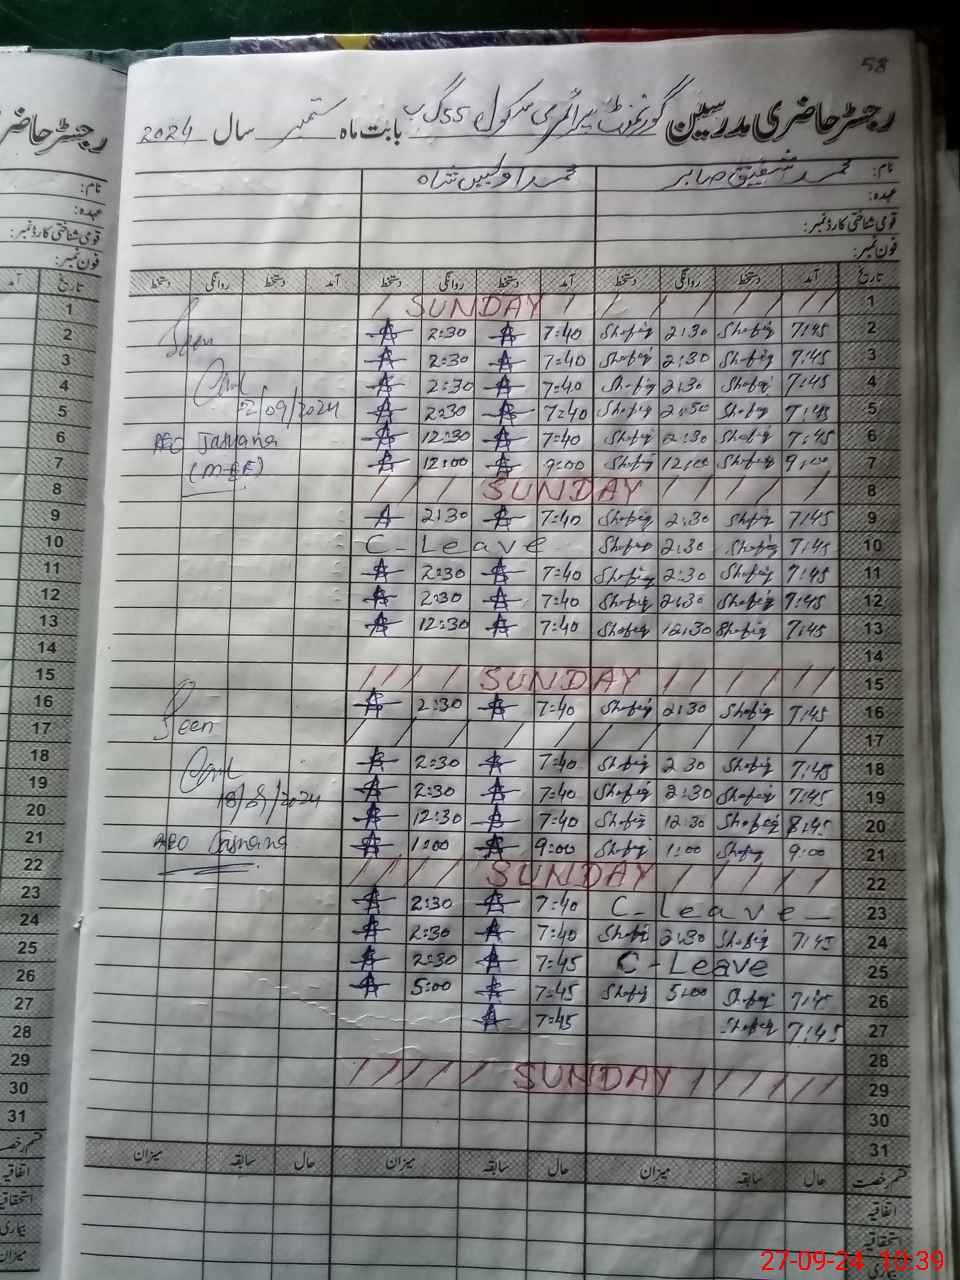 58
رجسٹر حاضری مدرسین گورنمنٹ پرائمری سکول 55 گ ب بابت ماہ ستمبر سال 2024
نام: محمد شفیق صابر محمد اویس شاہ
عہدہ:
قومی شناختی کارڈ نمبر:
فون نمبر:
تاریخ آمد دستخط روانگی دستخط آمد دستخط روانگی دستخط آمد دستخط روانگی دستخط
1 SUNDAY
2 7:45 Shafiq 2:30 Shafiq 7:40 2:30
3 7:45 Shafiq 2:30 Shafiq 7:40 2:30
4 7:45 Shafiq 2:30 Shafiq 7:40 2:30
5 7:45 Shafiq Shafiq 7:40 2:30
6 7:45 Shafiq 2:30 Shafiq 7:40 12:30
7 9:00 Shafiq 12:00 Shafiq 9:00 12:00
Seen
/09/2024
AEO
(M-EE)
8 SUNDAY
9 7:45 Shafiq 2:30 Shafiq 7:40 2:30
10 7:45 Shafiq 2:30 Shafiq C-Leave
11 7:45 Shafiq 2:30 Shafiq 7:40 2:30
12 7:45 Shafiq 2:30 Shafiq 7:40 2:30
13 7:45 Shafiq 12:30 Shafiq 7:40 12:30
14
15 SUNDAY
16 7:45 Shafiq 2:30 Shafiq 7:40 2:30
17
18 7:45 Shafiq 2:30 Shafiq 7:40 2:30
19 7:45 Shafiq 2:30 Shafiq 7:40 2:30
20 8:45 Shafiq 12:30 Shafiq 7:40 12:30
21 9:00 Shafiq 1:00 Shafiq 9:00 1:00
Seen
18/09/2024
AEO
22 SUNDAY
23 C-Leave 7:40 2:30
24 7:45 Shafiq 2:30 Shafiq 7:40 2:30
25 C-Leave 7:45 2:30
26 7:45 Shafiq 5:00 Shafiq 7:45 5:00
27 7:45 Shafiq 7:45
28
29 SUNDAY
30
31
قسم رخصت حال سابقہ میزان حال سابقہ میزان حال سابقہ میزان
اتفاقیہ
استحقاقیہ
بیماری
27-09-24 10:39